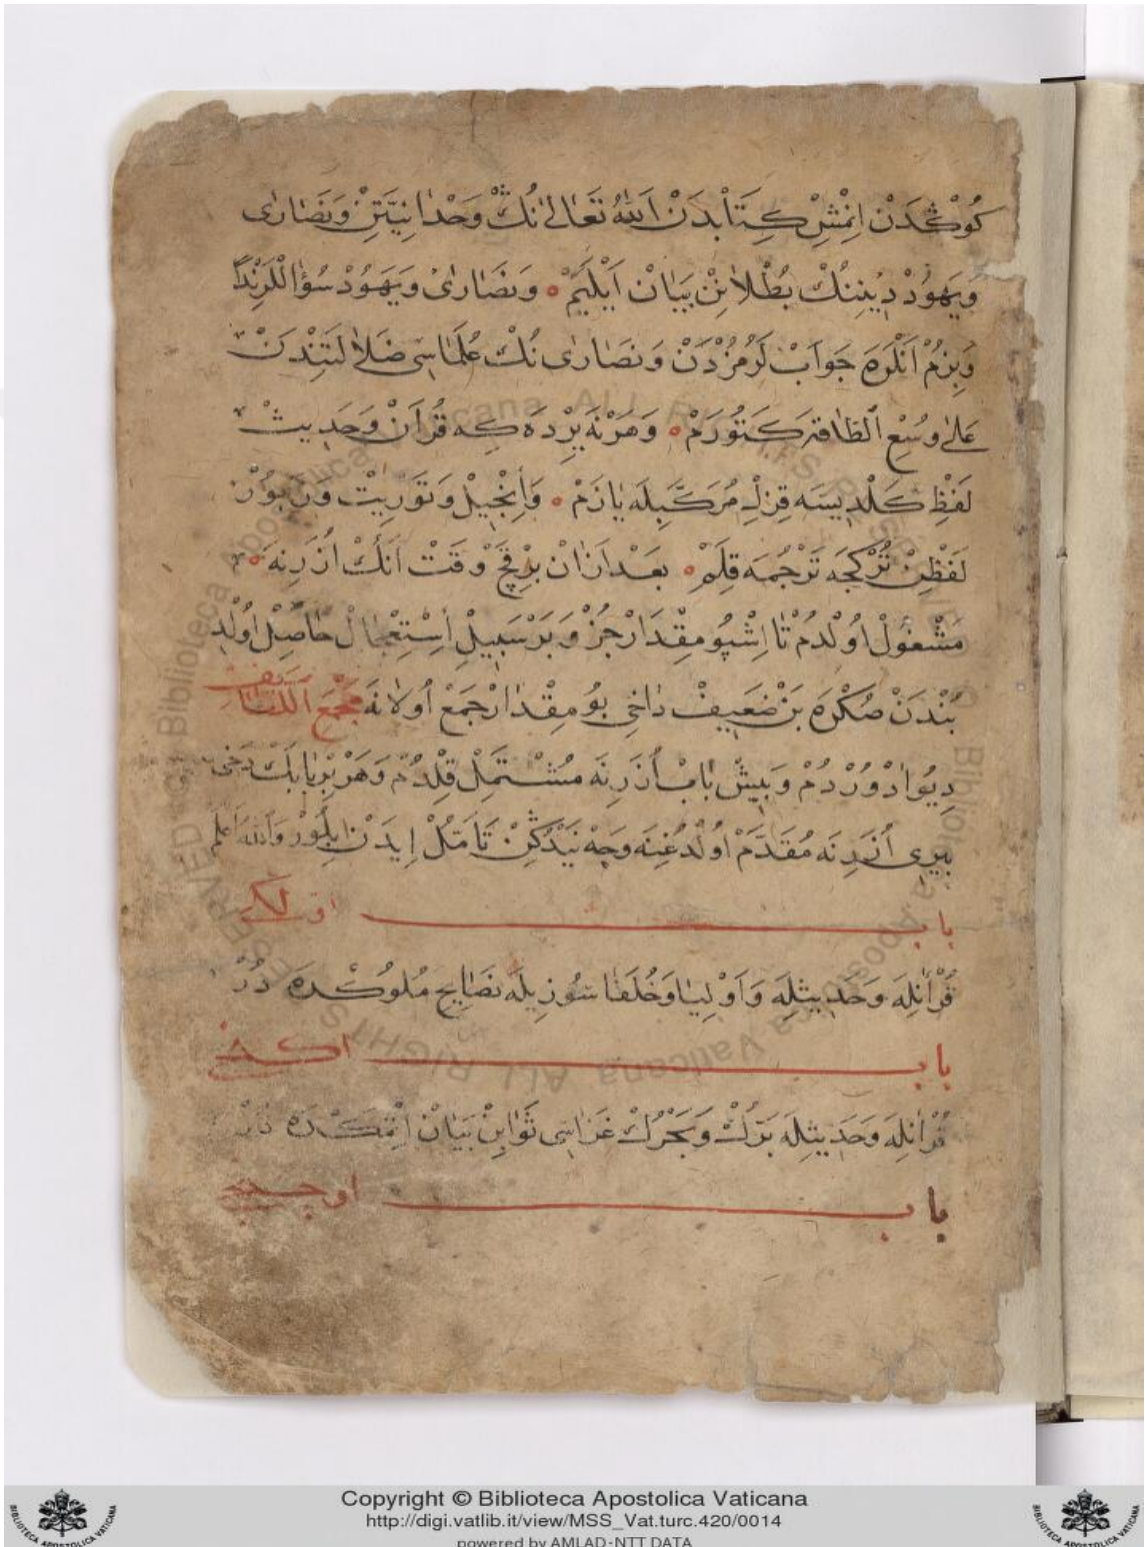 كُوكْدَنْ اِنْمِشْ كِتَابْدَنْ اَللهُ تَعَالٰى نُكْ وَحْدَانِيَّتِنْ وَنَصَارٰى
وَيَهُودْ دِينِنُكْ بُطْلَانِنْ بَيَانْ اَيْلَيَمْ ٥ وَنَصَارٰى وَيَهُودْ سُؤَاللَّرِنْدَا
وَبِزُمْ اَنْلَرَهَ جَوَابْ لَرُمُزْدَنْ وَنَصَارٰى نُكْ عُلَمَاسِى ضَلَالَتِنْدَنْ
عَلٰى وُسْعِ الطَّاقَة كَتُورَمْ ٥ وَهَرْنَه يِرْدَه كِه قُرْاٰنْ وَحَدِيثْ
لَفْظِ كَلْدِيسَه قِزِلْ مُرَكَّبِلَه يَازَمْ ٥ وَاِنْجِيلْ وَتَوْرِيتْ وَزَبُورْ
لَفْظِنْ تُرْكْجَه تَرْجُمَه قِلَمْ ٥ بَعْدَ اَزَانْ بِرْقَچْ وَقَتْ اَنُكْ اُزَرِنَه ٥
مَشْغُولْ اُولْدُمْ تَا اِشْبُو مِقْدَارْ جُزْ وَبَرْ سَبِيلِ اِسْتِعْجَالْ حَاصِلْ اُولْدِ
بُنْدَنْ صُكْرَه بَنْ ضَعِيفْ دَاخِى بُو مِقْدَارْ جَمَعْ اُولَانَه مَجْمَعُ اللَّطَايِفْ
دِيُو اَدْ وُرْدُمْ وَبِيشْ بَابْ اُزَرِنَه مُشْتَمِلْ قِلْدُمْ وَهَرْ بِرْ بَابُكْ دَخِى
بِيرِى اُزَرِنَه مُقَدَّمْ اُولْدُغِنَه وَجِهْ نَيْدُكِنْ تَأَمُّلْ اِيدَنْ بِلُورْ وَاللهُ اَعْلَم
باب اولكى
قُرْاٰنِلَه وَحَدِيثِلَه وَاَوْلِيَا وَخُلَفَا سُوزِيلَه نَصَايِحِ مُلُوكْدَه دُرْ
باب اكنجى
قُرْاٰنِلَه وَحَدِيثِلَه بَرُّكْ وَبَحْرُكْ غَزَاسِى ثَوَابِنْ بَيَانْ اِتْمَكْدَه دُرْ
باب اوچنجى
Copyright © Biblioteca Apostolica Vaticana
http://digi.vatlib.it/view/MSS_Vat.turc.420/0014
powered by AMLAD-NTT DATA